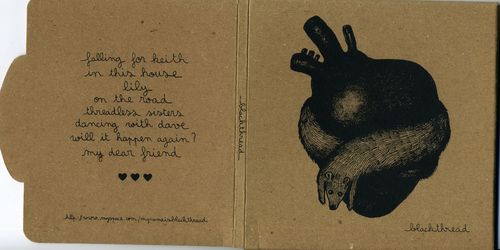 falling for keith
in this house
lily
on the road
threadless sisters
dancing with dave
will it happen again?
my dear friend
http://www.myspace.com/mynameisblackthread
blackthread
blackthread